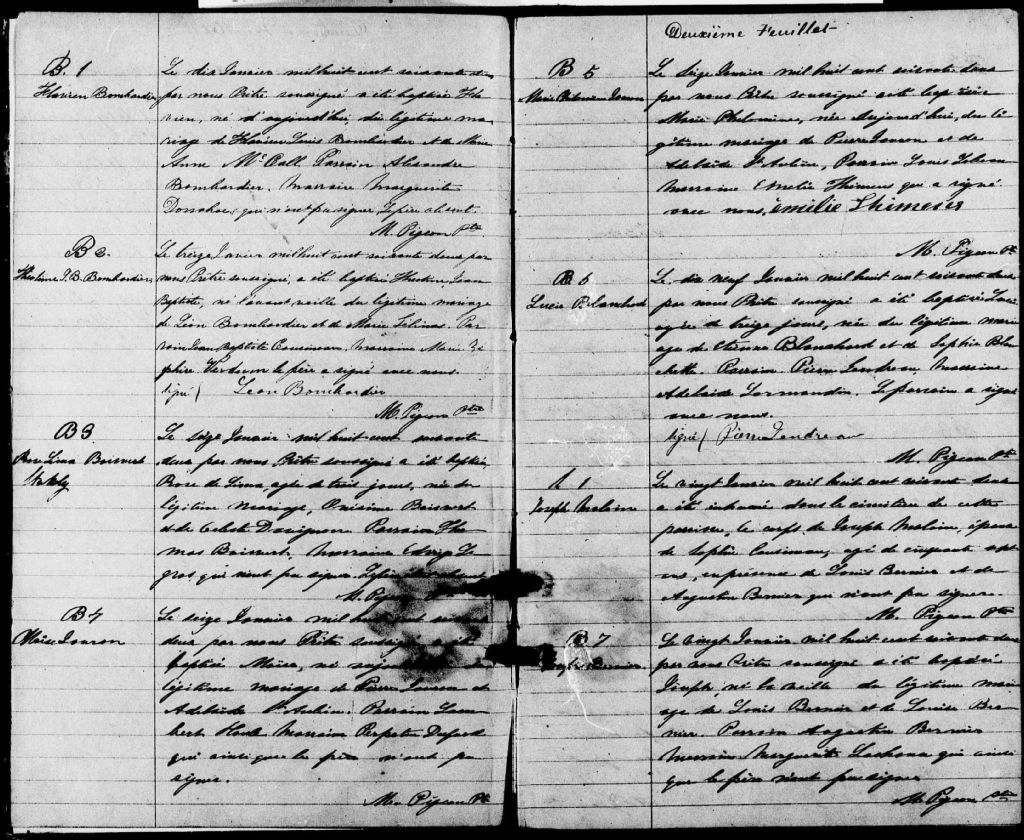 B. 1
Flavien Bombardier
Le dix Janvier mil huit cent soixante deux
par nous Prêtre soussigné a été baptisé Fla
vien, né d'aujourd'hui, du légitime ma
riage de Flavien Louis Bombardier et de Marie
Anne McCall Parrain Alexandre
Bombardier. Marraine Marguerite
Donahoe, qui n'ont pu signer. Le père absent.
M. Pigeon Ptre
B 2.
J. B. Bombardier
Le treize Janvier mil huit cent soixante deux par
nous Prêtre soussigné, a été baptisé Jean
Baptiste, né l'avant veille du légitime mariage
de Léon Bombardier et de Marie Gélinas. Par
rain Jean Baptiste Cousineau. Marraine Marie Zé
phire Verdon le père a signé avec nous
signé) Léon Bombardier
M. Pigeon Ptre
B 3
Rose Lima Boisvert
Le seize Janvier mil huit cent soixante
deux par nous Prêtre soussigné a été baptisée
Rose de Lima, agée de trois jours, née du
légitime mariage, Onésime Boisvert
et de Parrain Tho
mas Boisvert, Marraine Le
gros qui n'ont pu signer. Le père
M. Pigeon
B 4
Moïse Jonson
Le seize Janvier mil huit cent soixante
deux par nous Prêtre soussigné a été
baptisé Moïse, né aujourd'hui
légitime mariage de Pierre Jonson et
Adelaïde St Aubin. Parrain Lam
bert Houle Marraine
qui ainsi que le père n'ont pu
signer.
M. Pigeon Ptre
Deuxième Feuillet
B 5
Marie Philomène Jonson
Le seize Janvier mil huit cent soixante deux
par nous Prêtre soussigné a été baptisée
Marie Philomène, née aujourd'hui, du lé
gitime mariage de Pierre Jonson et de
Adelaïde St Aubin, Parrain Louis
Marraine Emélie qui a signé
avec nous. émilie
M. Pigeon Ptre
B 6
Lucie Blanchard
Le dix neuf Janvier mil huit cent soixante deux
par nous Prêtre soussigné a été baptisée Lucie
agée de treize jours, née du légitime mari
age de Etienne Blanchard et de Sophie Blan
chette. Parrain Pierre Gendreau, Marraine
Adelaide Normandin. Le parrain a signé
avec nous.
signé) Pierre Gendreau
M. Pigeon Ptre
S 1
Joseph
Le vingt Janvier mil huit cent soixante deux
a été inhumé dans le cimetière de cette
paroisse, le corps de Joseph époux
de Sophie Cousineau, agé de cinquante sept
ans, en présence de Louis Bernier et de
Augustin Bernier qui n'ont pu signer.
M. Pigeon Ptre
B 7
Joseph Bernier
Le vingt Janvier mil huit cent soixante deux
par nous Prêtre soussigné a été baptisé
Joseph né la veille du légitime mari
age de Louis Bernier et de Louise
Parrain Augustin Bernier
Marraine Marguerite qui ainsi
que le père n'ont pu signer
M. Pigeon Ptre